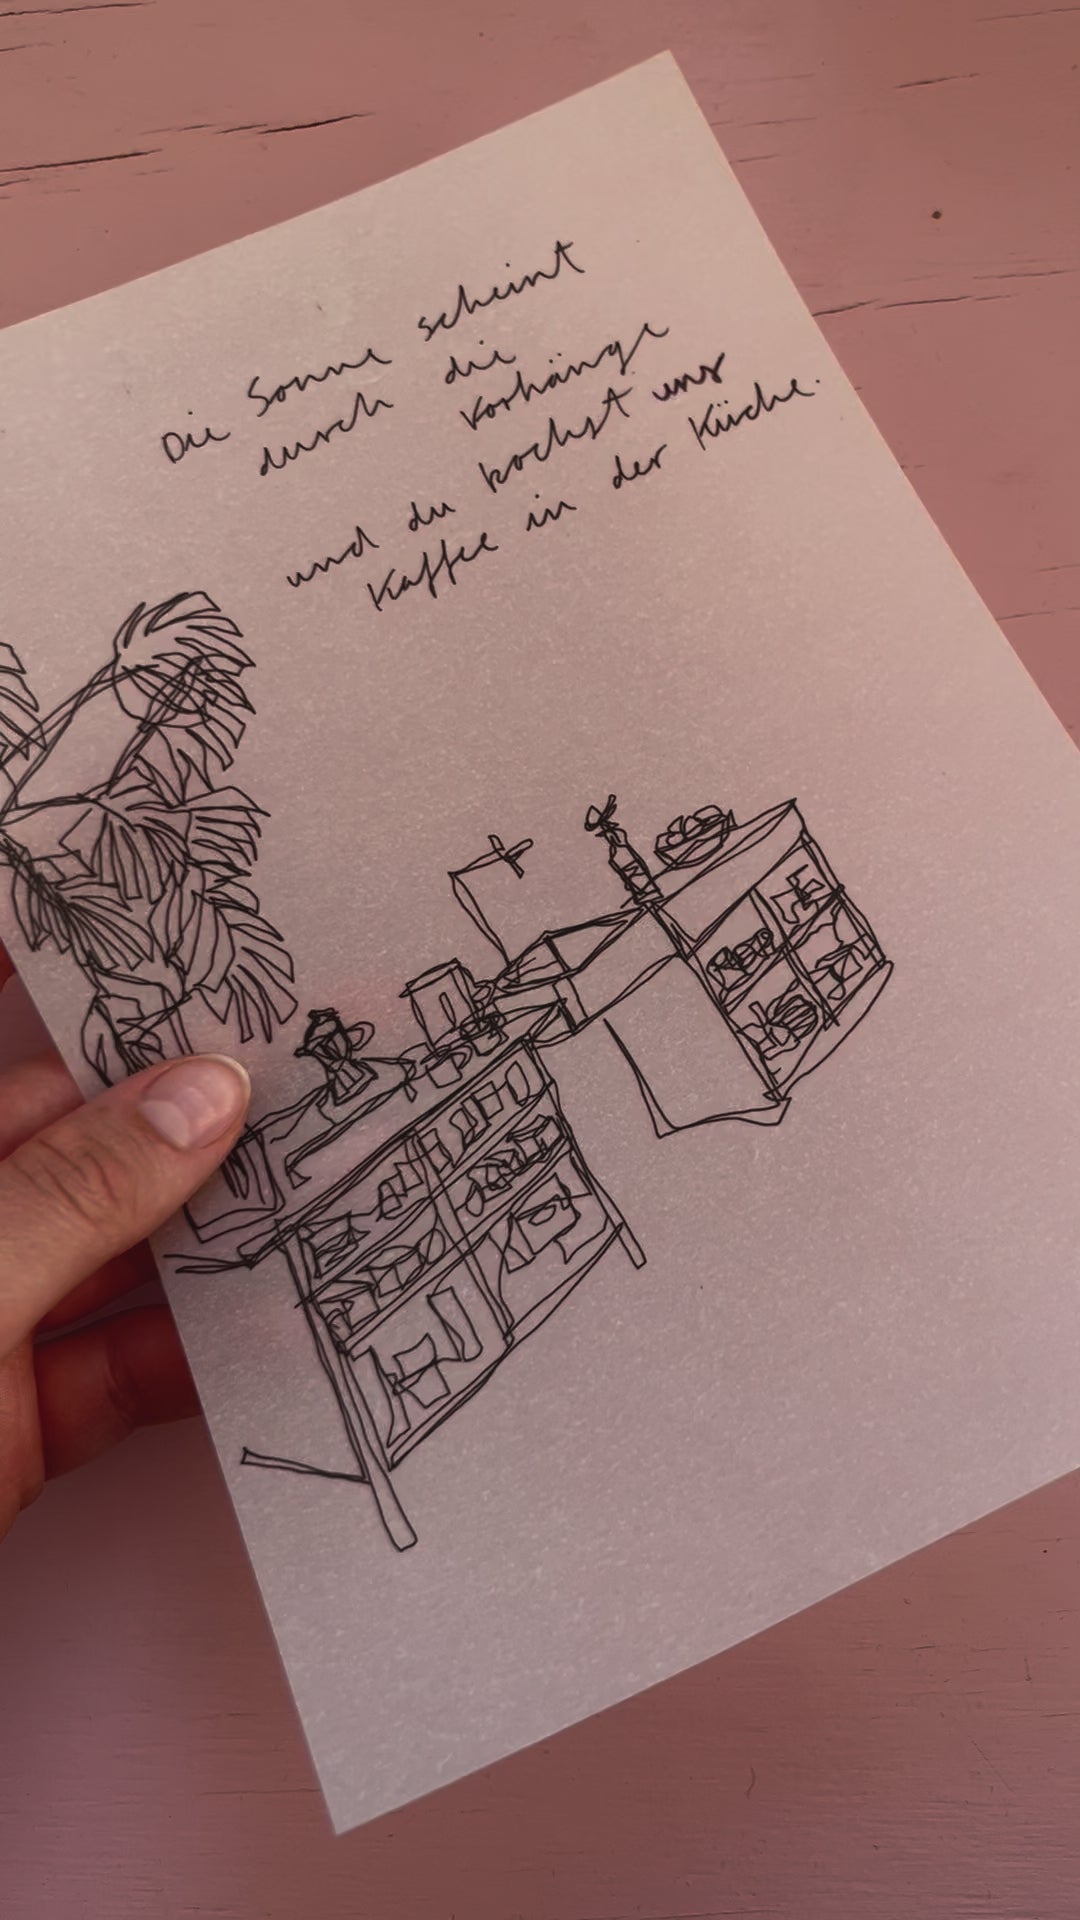 Die Sonne scheint
durch die
Vorhänge
und du kochst uns
Kaffee in der Küche.